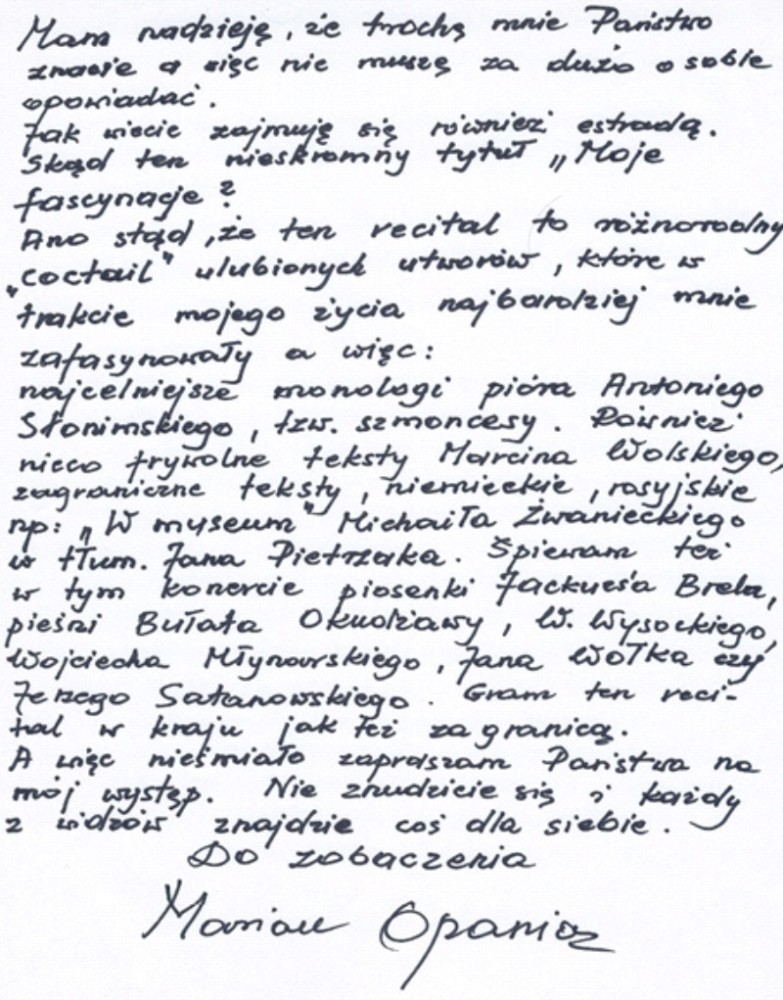 Mam nadzieję, że trochę mnie Państwo
znacie a więc nie muszę za dużo o sobie
opowiadać.
Jak wiecie zajmuję się również estradą.
Skąd ten nieskromny tytuł „Moje
fascynacje?
Ano stąd, że ten recital to różnorodny
"coctail" ulubionych utworów, które w
trakcie mojego życia najbardziej mnie
zafasynowały a więc:
najcelniejsze monologi pióra Antoniego
Słonimskiego, tzw. szmoncesy. Również
nieco frywolne teksty Marcina Wolskiego,
zagraniczne teksty, niemieckie, rosyjskie
np: „W museum" Michaiła Żwanieckiego
w tłum. Jana Pietrzaka. Śpiewam też
w tym koncercie piosenki Jackues'a Brela,
pieśni Bułata Okudżawy, W. Wysockiego,
Wojciecha Młynarskiego, Jana Wołka czy
Jerzego Satanowskiego. Gram ten reci-
tal w kraju jak też za granicą.
A więc nieśmiało zapraszam Państwa na
mój występ. Nie znudzicie się i każdy
z widzów znajdzie coś dla siebie.
Do zobaczenia
Marian Opania